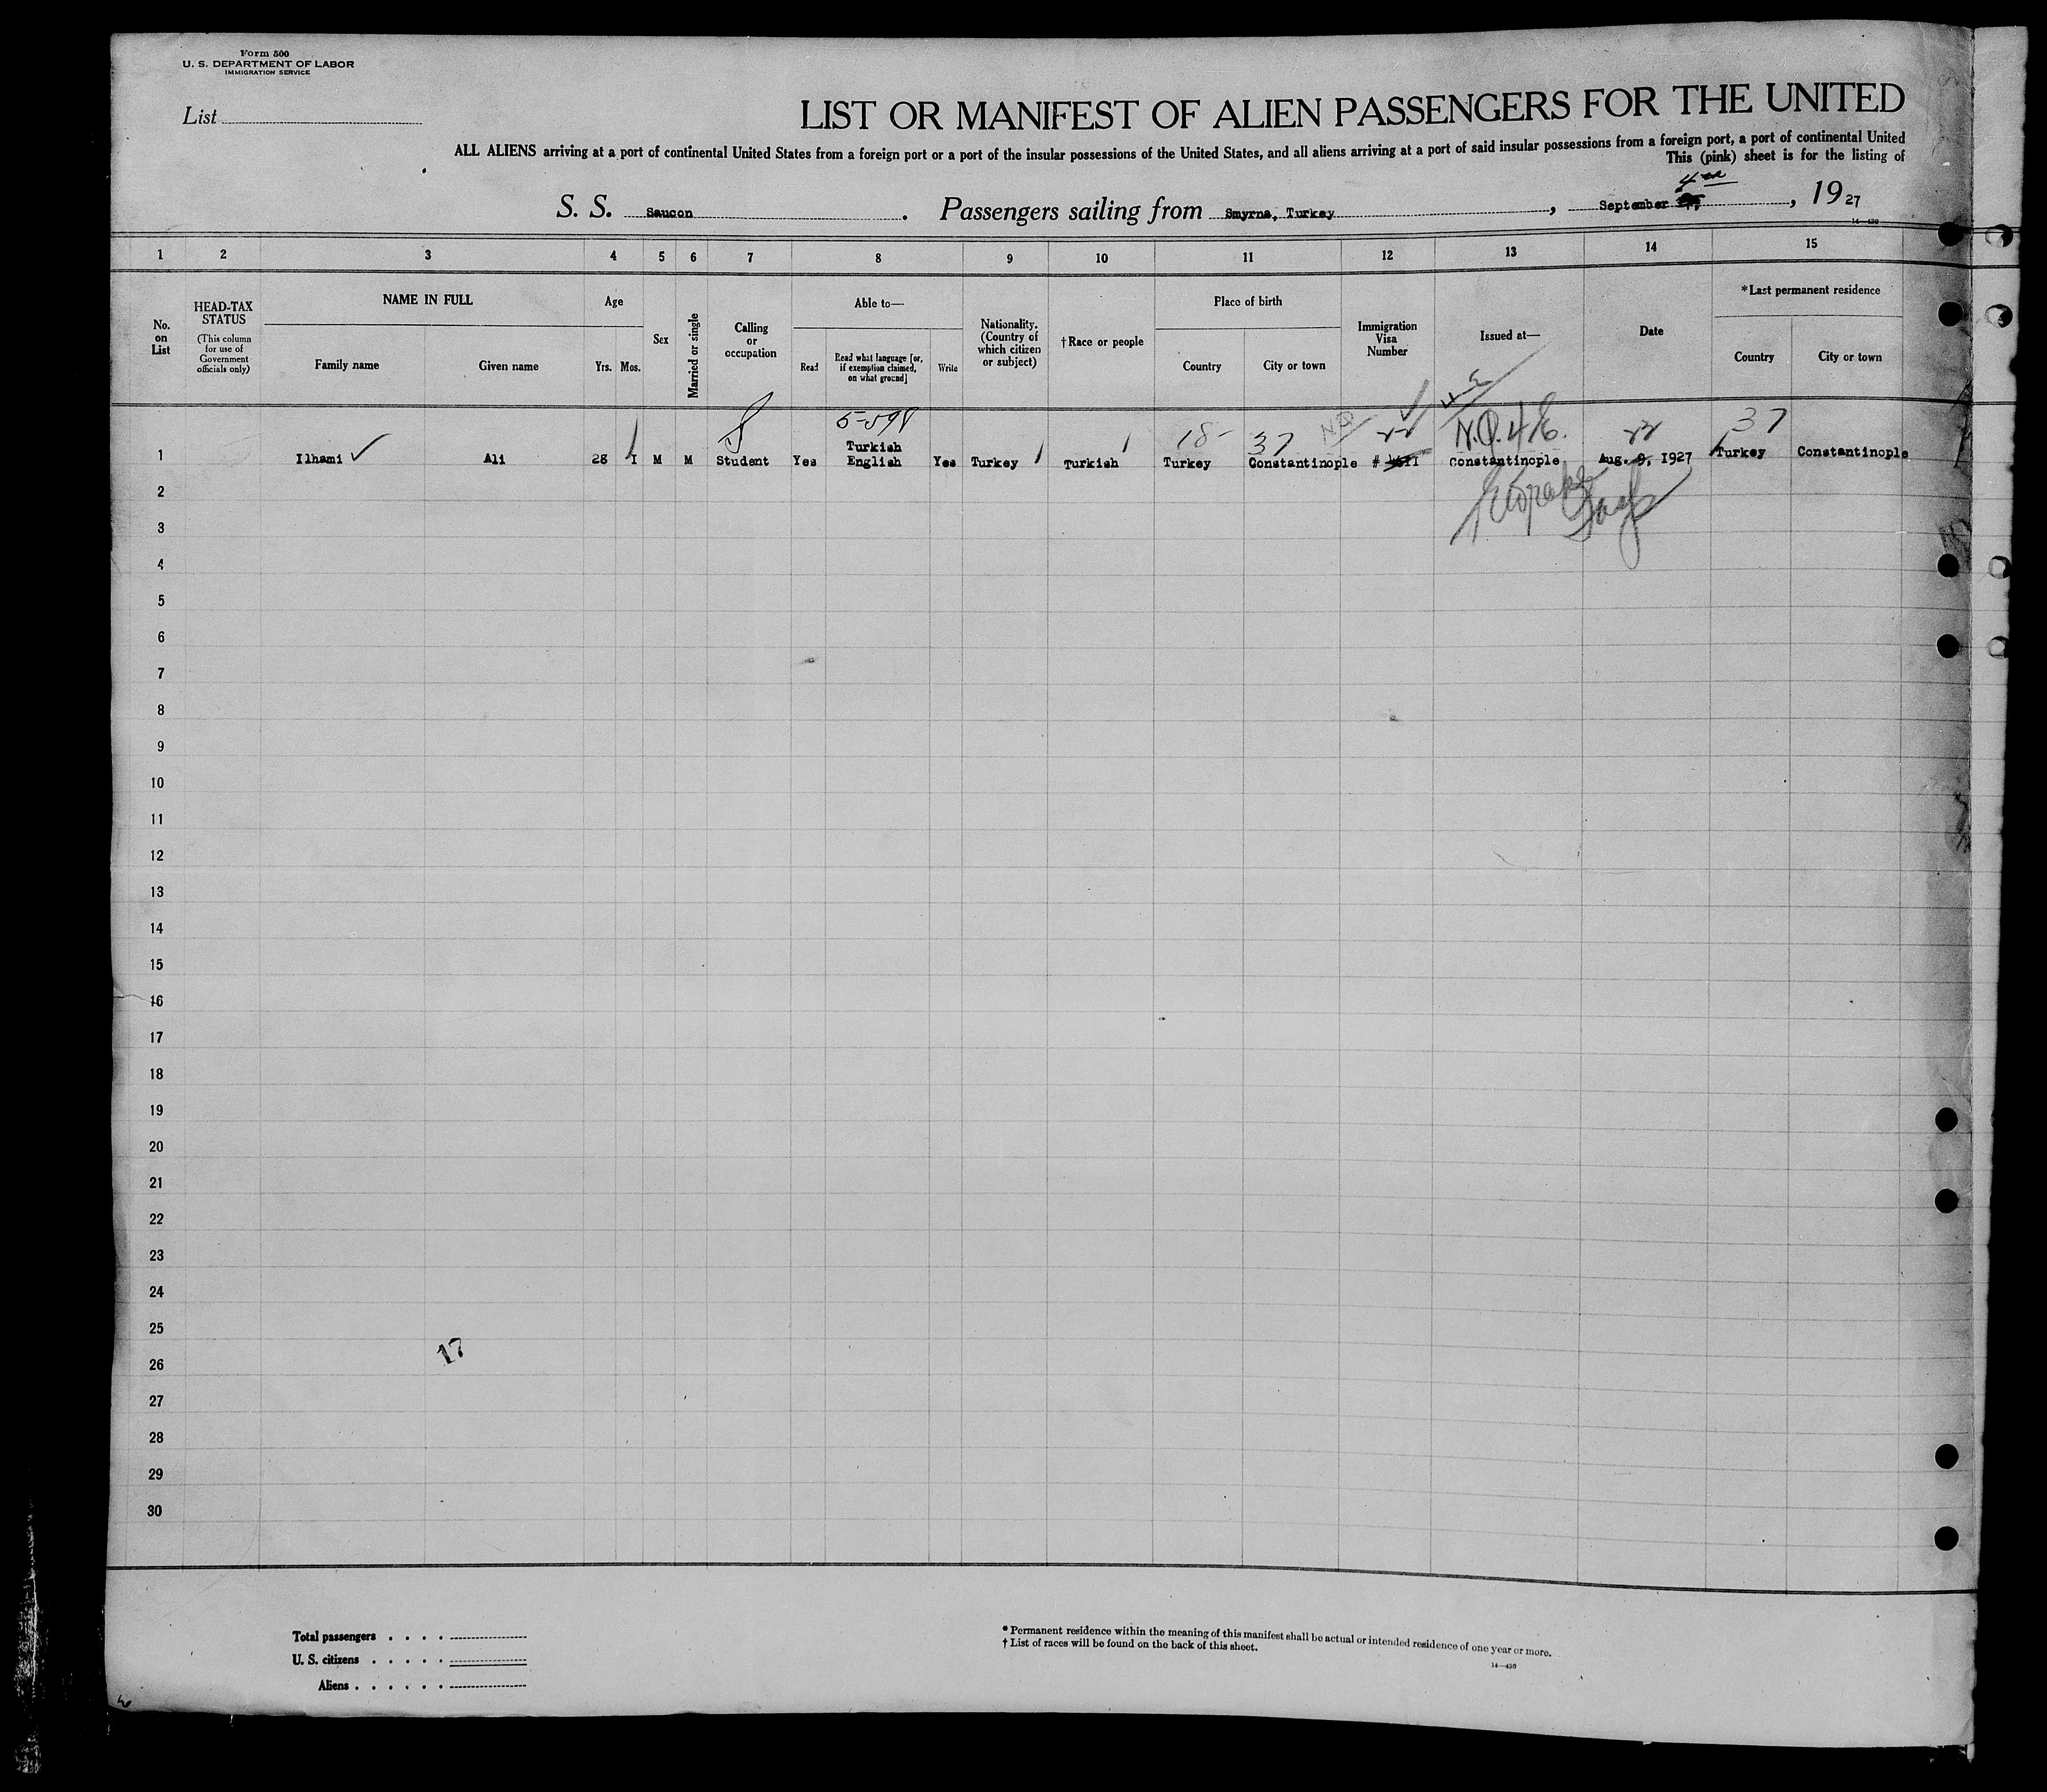 Form 500
U. S. DEPARTMENT OF LABOR
IMMIGRATION SERVICE
List
LIST OR MANIFEST OF ALIEN PASSENGERS FOR THE UNITED
ALL ALIENS arriving at a port of continental United States from a foreign port or a port of the insular possessions of the United States, and all aliens arriving at a port of said insular possessions from a foreign port, a port of continental United
This (pink) sheet is for the listing of
S. S. Saucon. Passengers sailing from Smyrna, Turkey, September 4, 1927
14—430
1 2 3 4 5 6 7 8 9 10 11 12 13 14 15
No. on List
HEAD-TAX STATUS
(This column for use of Government officials only)
NAME IN FULL
Family name Given name
Age
Yrs. Mos.
Sex
Married or single
Calling or occupation
Able to—
Read
Read what language [or, if exemption claimed, on what ground]
Write
Nationality. (Country of which citizen or subject)
†Race or people
Place of birth
Country City or town
Immigration Visa Number
Issued at—
Date
*Last permanent residence
Country City or town
5-598
18- 37 N.Q. 37
1 Ilhami Ali 28 1 M M Student Yes Turkish English Yes Turkey Turkish Turkey Constantinople # Constantinople Aug. 9, 1927 Turkey Constantinople
2
3
4
5
6
7
8
9
10
11
12
13
14
15
16
17
18
19
20
21
22
23
24
25
17
26
27
28
29
30
Total passengers
U. S. citizens
Aliens
* Permanent residence within the meaning of this manifest shall be actual or intended residence of one year or more.
† List of races will be found on the back of this sheet.
14—430